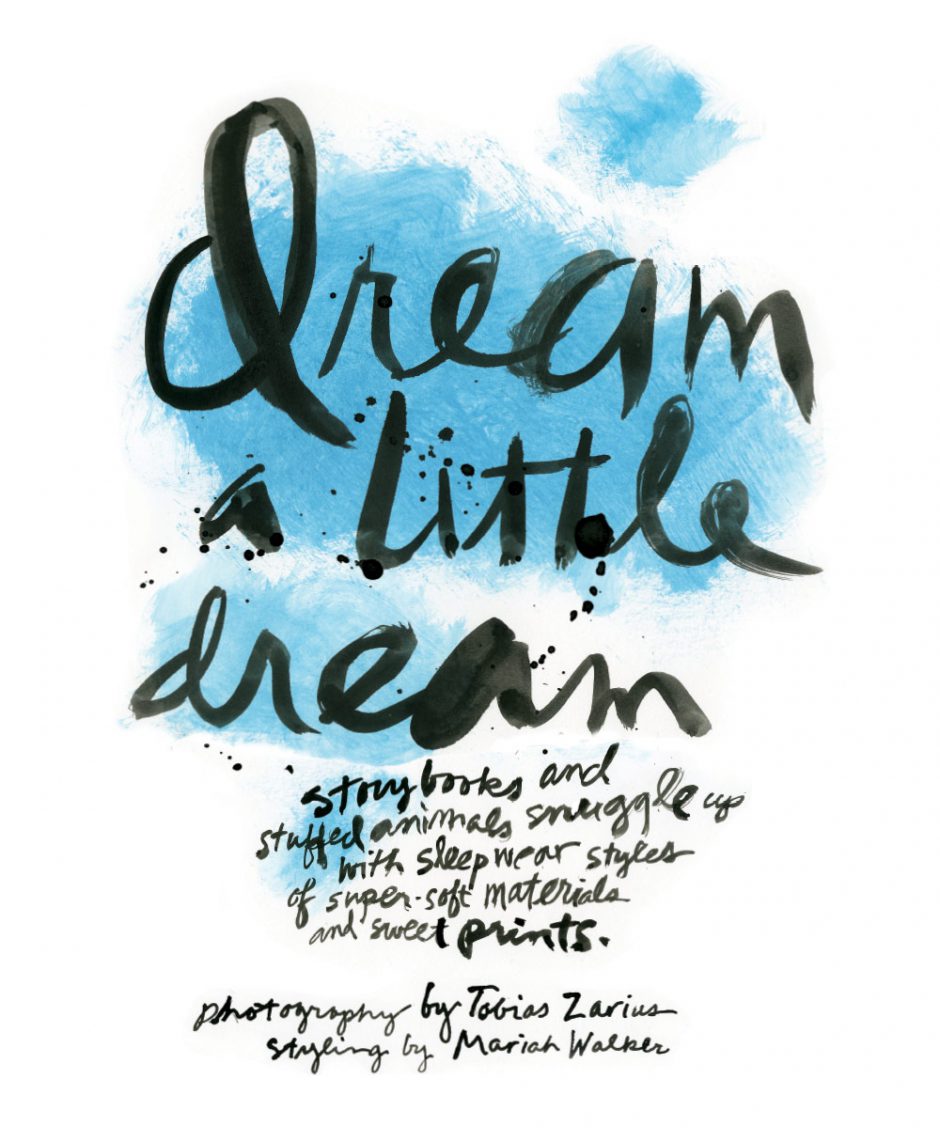 dream
a little
dream
storybooks and
stuffed animals snuggle up
with sleepwear styles
of super-soft materials
and sweet prints.
photography by Tobias Zarius
styling by Mariah Walker